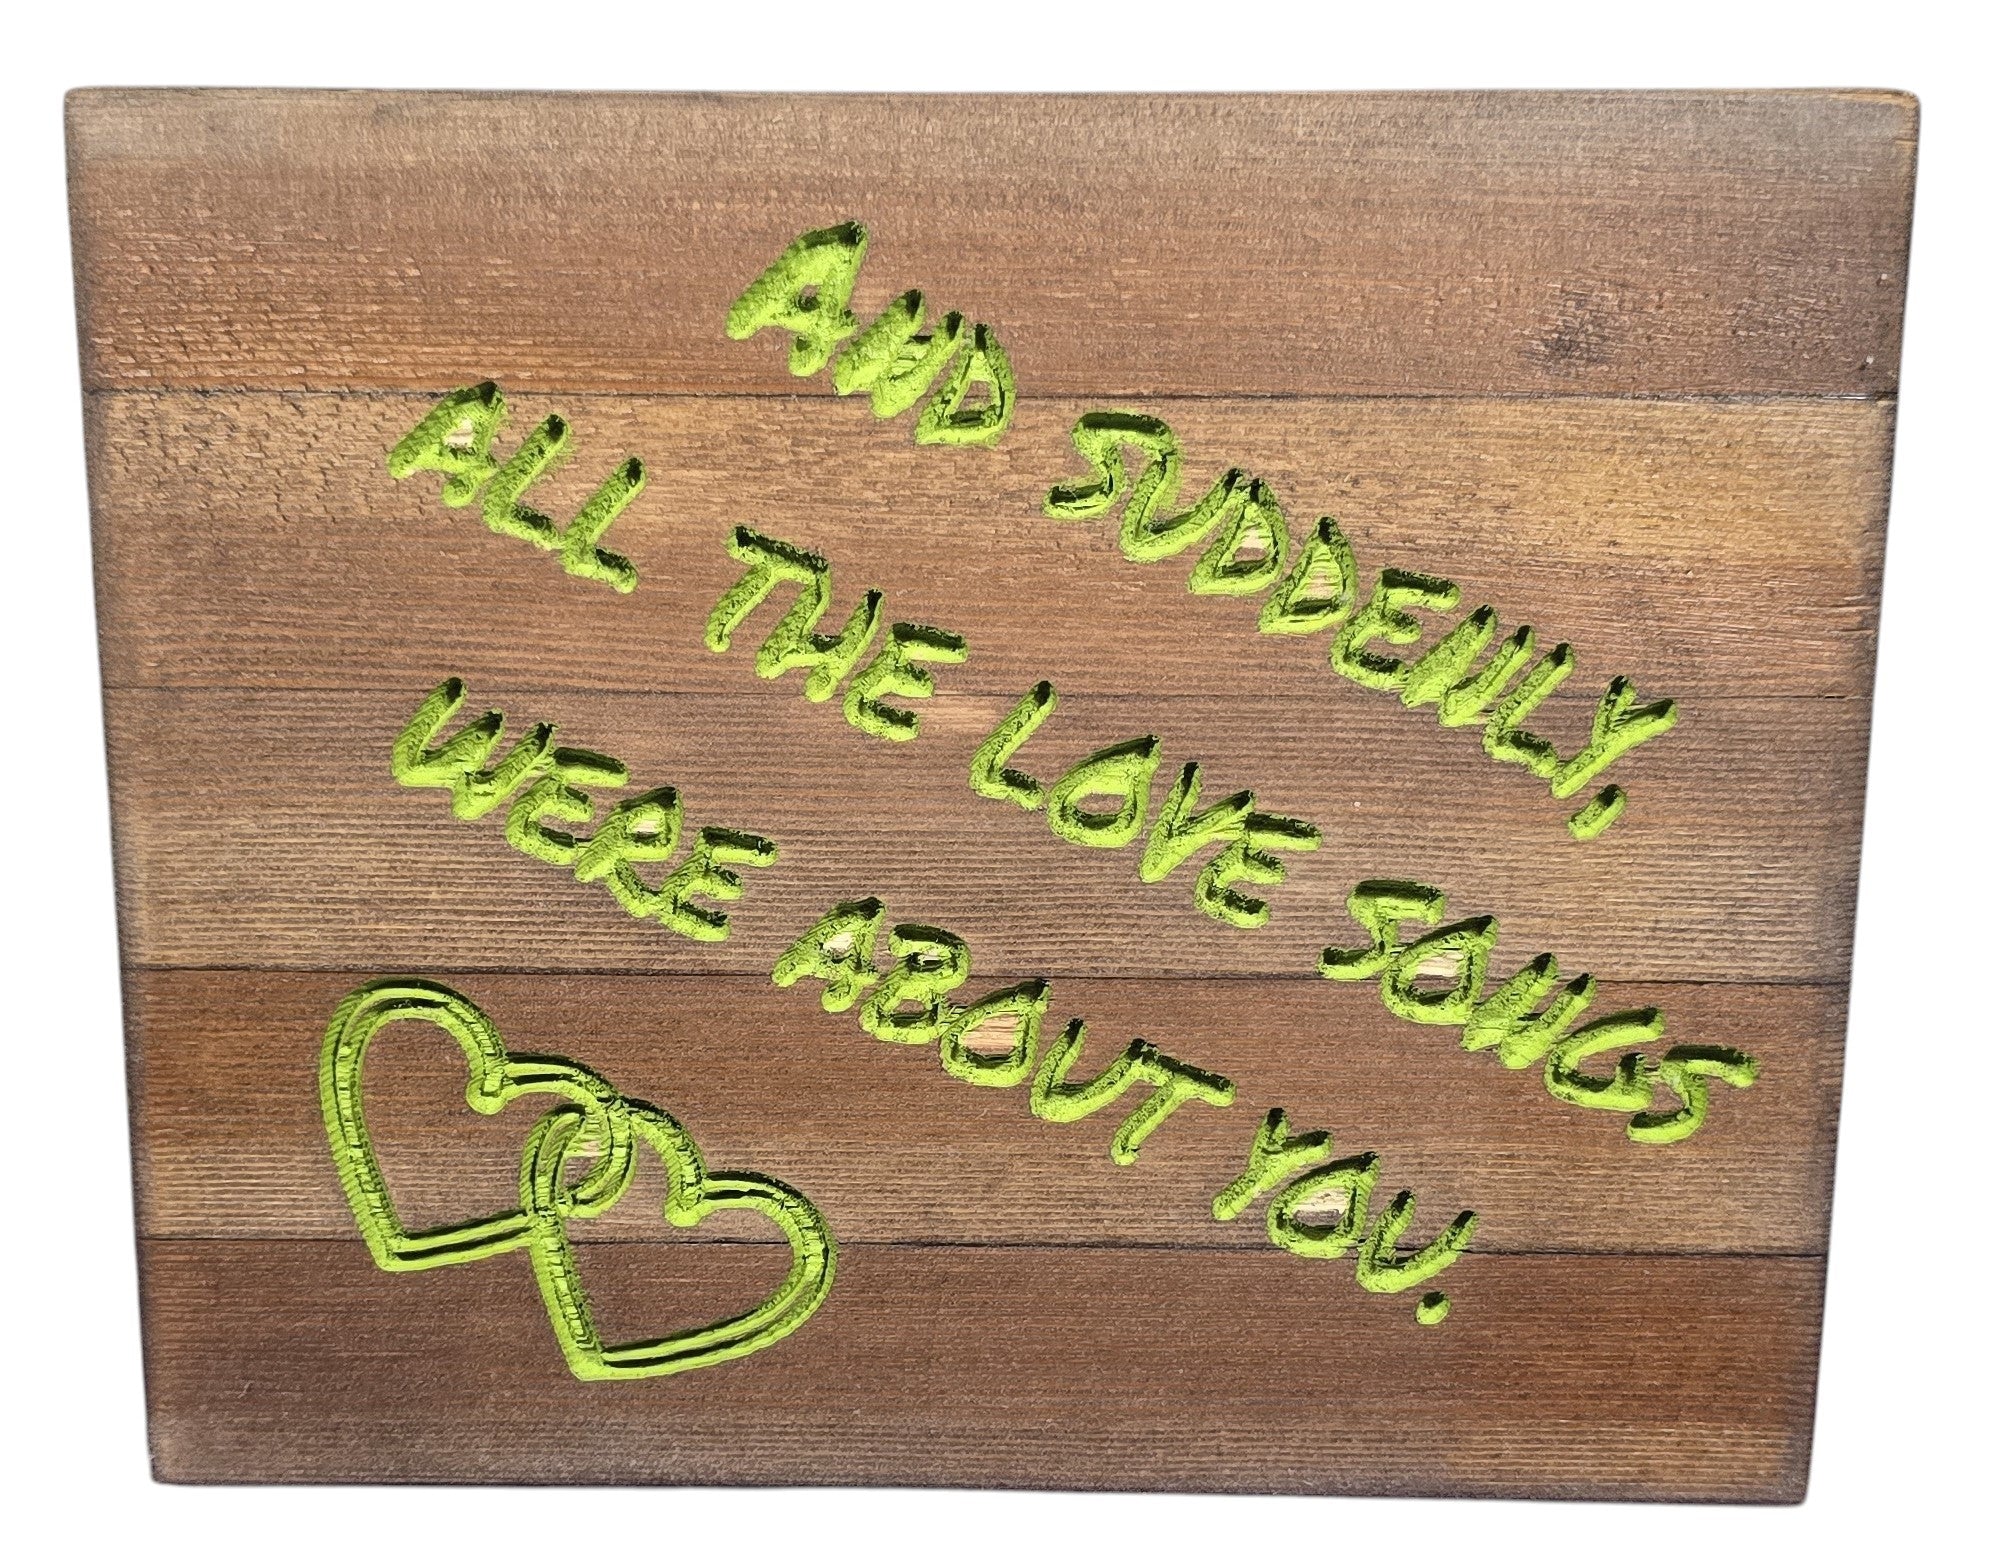 AND SUDDENLY,
ALL THE LOVE SONGS
WERE ABOUT YOU.